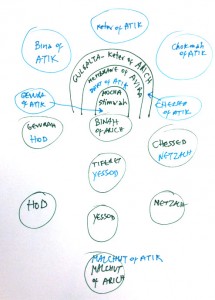 Keter of ATIK
Bina of
ATIK
Chokmah
of ATIK
GULGALTA - Keter of ARICH
MEMBRANE OF AVIRA
DAAT of ATIK
MOCHA
Stimah
GEVURA
of ATIK
CHESED
of ATIK
BINAH
of ARICH
GEVURAH
HOD
CHESSED
NETZACH
TIFERET
YESSOD
HOD
NETZACH
YESSOD
MALCHUT OF ATIK
MALCHUT
of ARICH